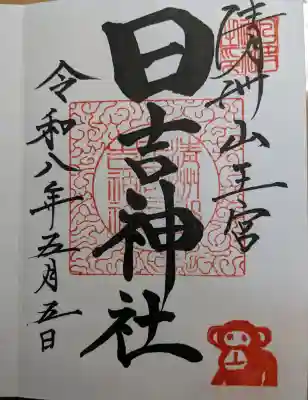 清洲山王宮
日吉神社
令和八年五月五日